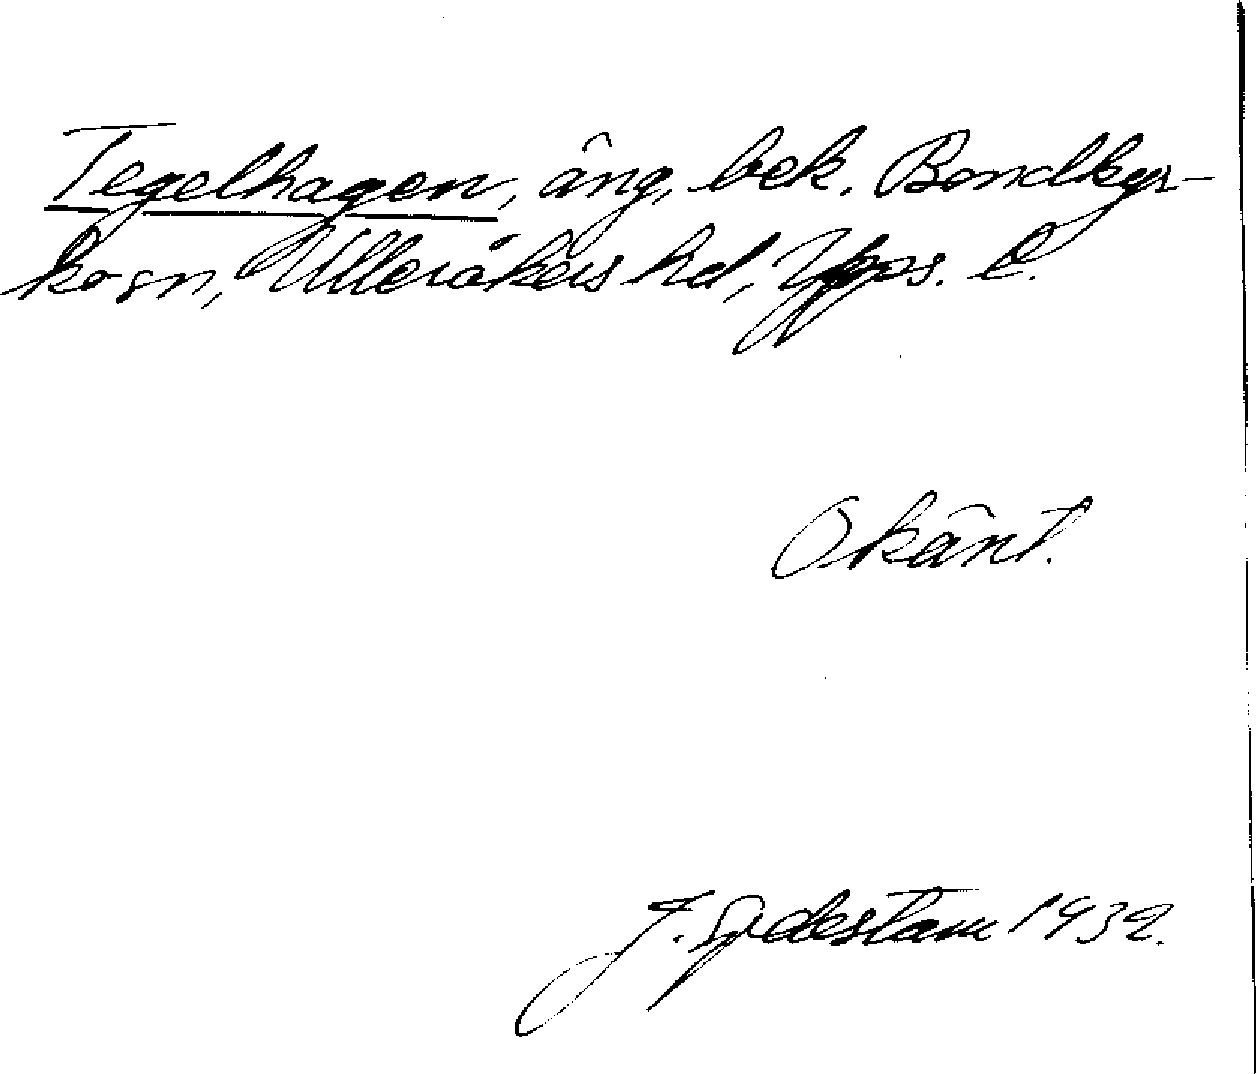 Tegelhagen, äng, bek. Bondkyr-
ko sn, Ulleråkers hd, Upps. l.
Okänt.
J. Sydestam 1932.